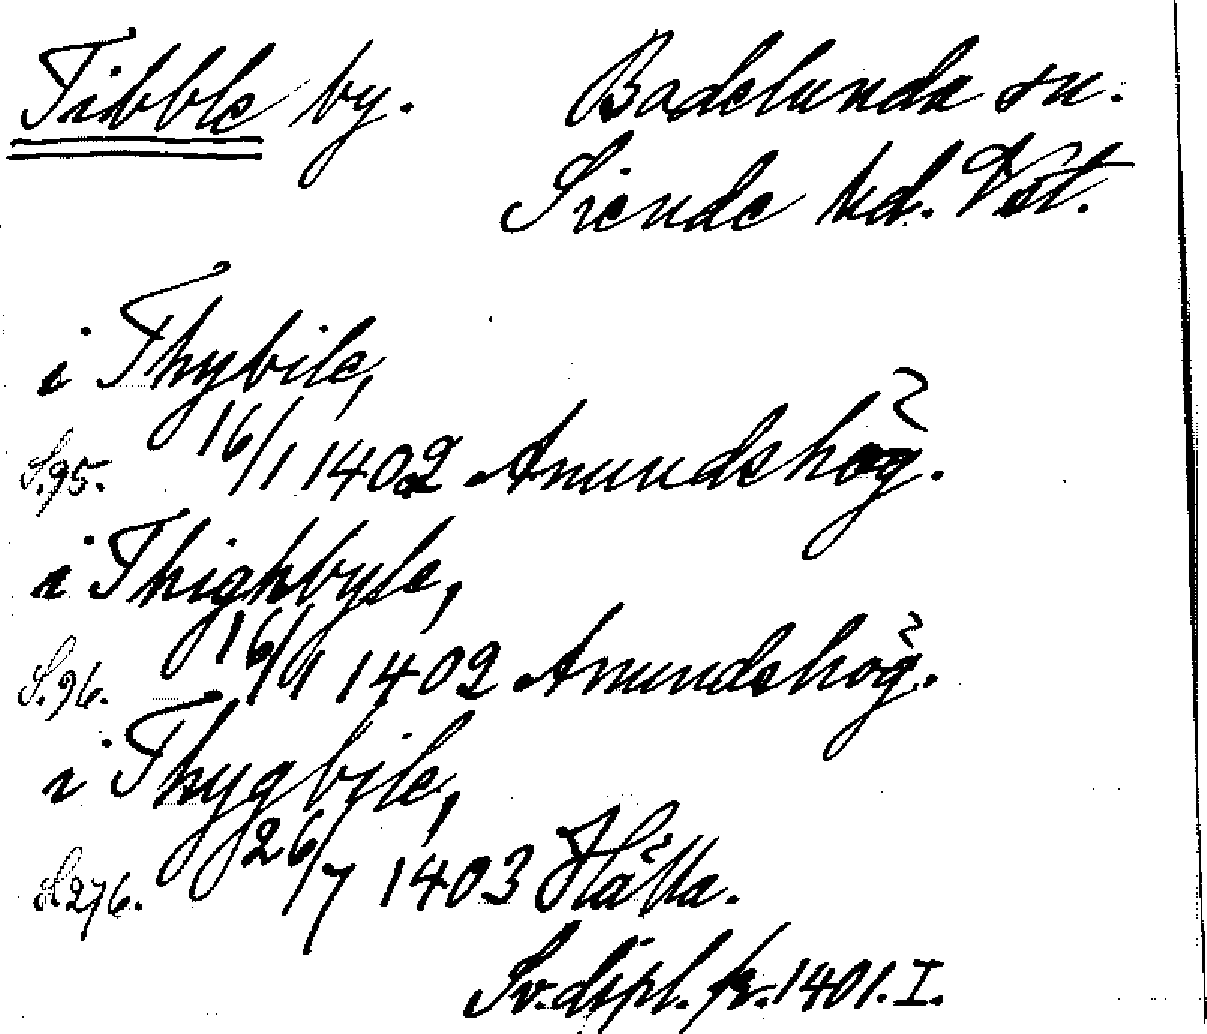 Tibble by. Badelunda sn.
Siende hd. Vst.
i Thybile,
S.95. 16/1 1402 Amundshög.
i Thighbyle,
S.96. 16/1 1402 Amundshög.
i Thygbile,
S.276. 26/7 1403 Hälla.
Sv. dipl. fr. 1401. I.